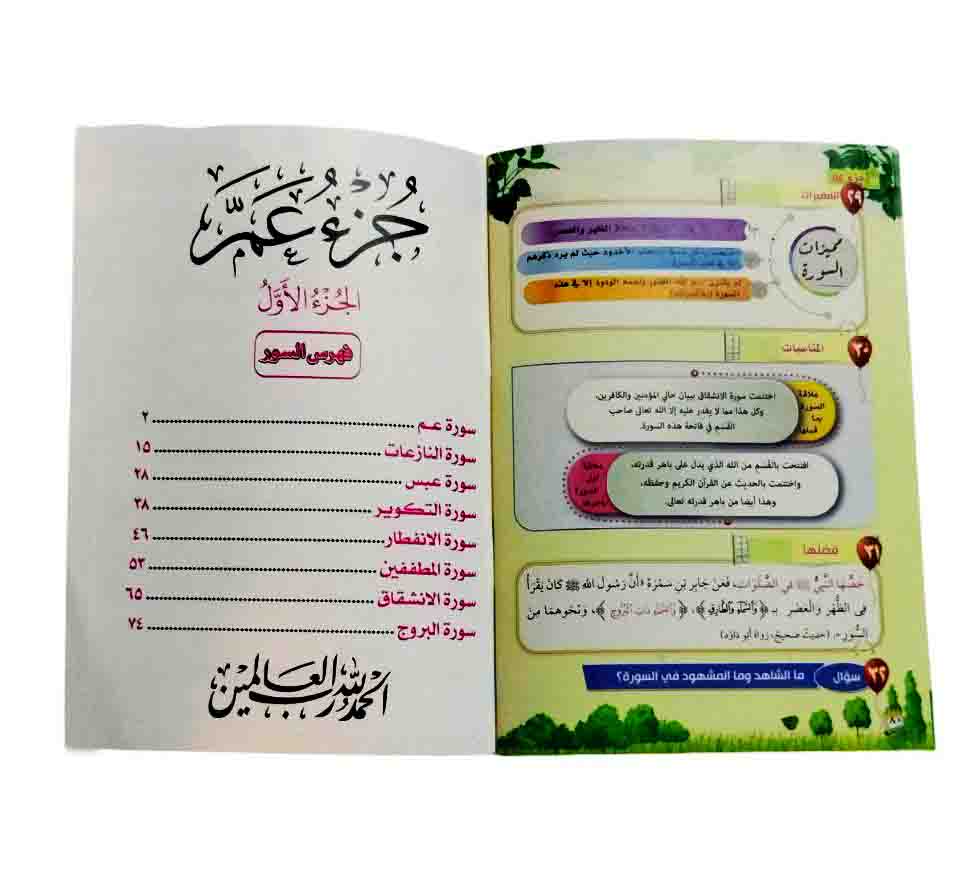 جزء عم
٢٩ المميزات
مميزات
السورة
الظهر والعصر
الأخدود حيث لم يرد ذكرهم
الودود إلا في هذه
السورة
٣٠ المناسبات
علاقة
السورة
بما
قبلها
اختتمت سورة الانشقاق ببيان حالي المؤمنين والكافرين،
وكل هذا مما لا يقدر عليه إلا الله تعالى صاحب
القسم في فاتحة هذه السورة.
افتتحت بالقسم من الله الذي يدل على باهر قدرته،
واختتمت بالحديث عن القرآن الكريم وحفظه،
وهذا أيضا من باهر قدرته تعالى.
٣١ فضلها
خصها النبي ﷺ في الصلوات، فعن جابر بن سمرة «أنَّ رَسُولَ الله ﷺ كَانَ يَقْرَأُ
فِي الظُّهْرِ وَالْعَصْرِ بـ ﴿وَالسَّمَاءِ وَالطَّارِقِ﴾، ﴿وَالسَّمَاءِ ذَاتِ الْبُرُوجِ﴾، وَنَحْوِهِمَا مِنَ
السُّوَرِ». (حديث صحيح، رواه أبو داود)
٣٢ سؤال ما الشاهد وما المشهود في السورة؟
٨٠
جُزْءُ عَمَّ
الجُزْءُ الأَوَّلُ
فهرس السور
سورة عم ٢
سورة النازعات ١٥
سورة عبس ٢٨
سورة التكوير ٣٨
سورة الانفطار ٤٦
سورة المطففين ٥٣
سورة الانشقاق ٦٥
سورة البروج ٧٤
الحمد لله رب العالمين